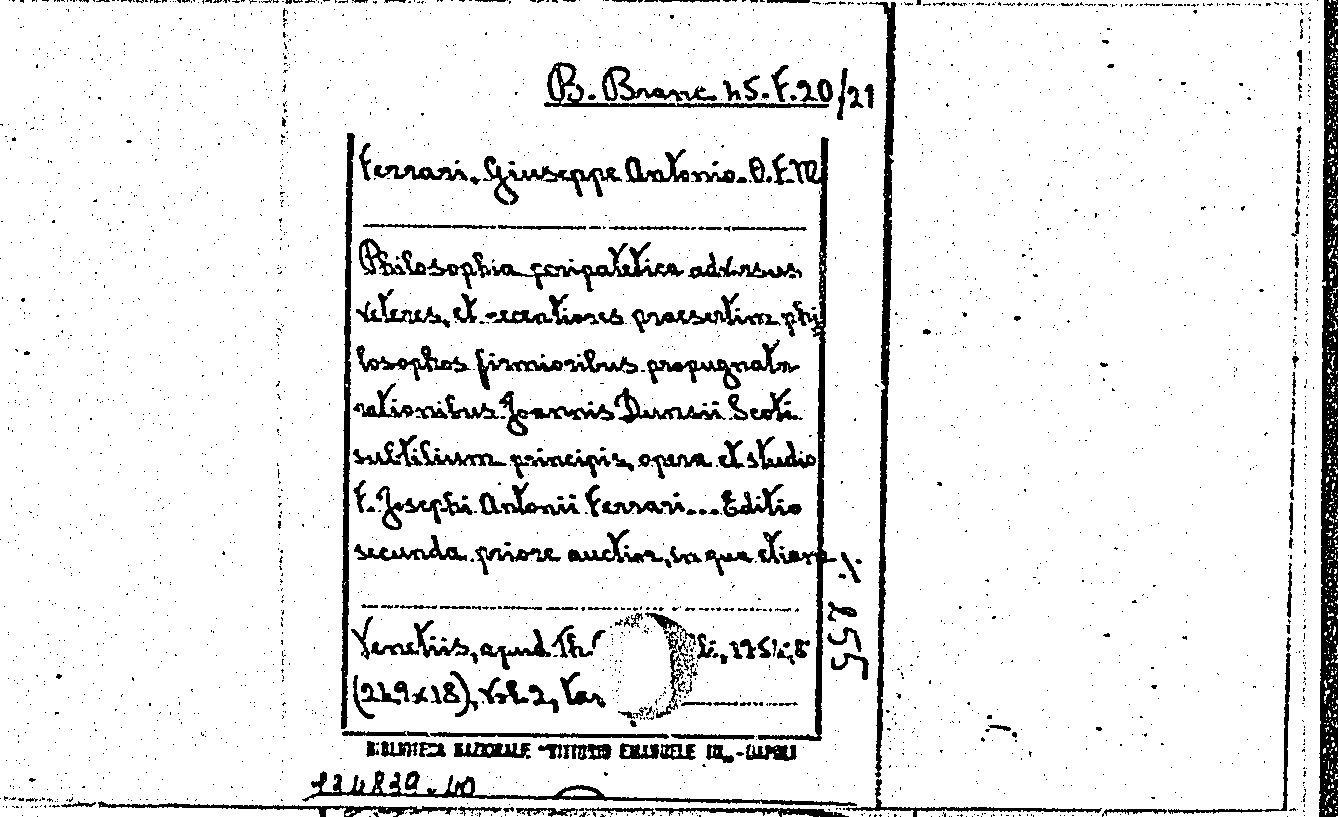 B. Branc. 45. F. 20/21
Ferrari, Giuseppe Antonio. O.F.M
Philosophia peripatetica adversus
veteres, et recentiores praesertim phi
losophos firmioribus propugnata
rationibus Joannis Dunsii Scoti
subtilium principis, opera et studio
F. Josephi Antonii Ferrari... Editio
secunda priore auctior, in qua etiam
Venetiis, apud Th
(24,9x18), vol. 2,
BIBLIOTECA NAZIONALE "VITTORIO EMANUELE III" - NAPOLI
255